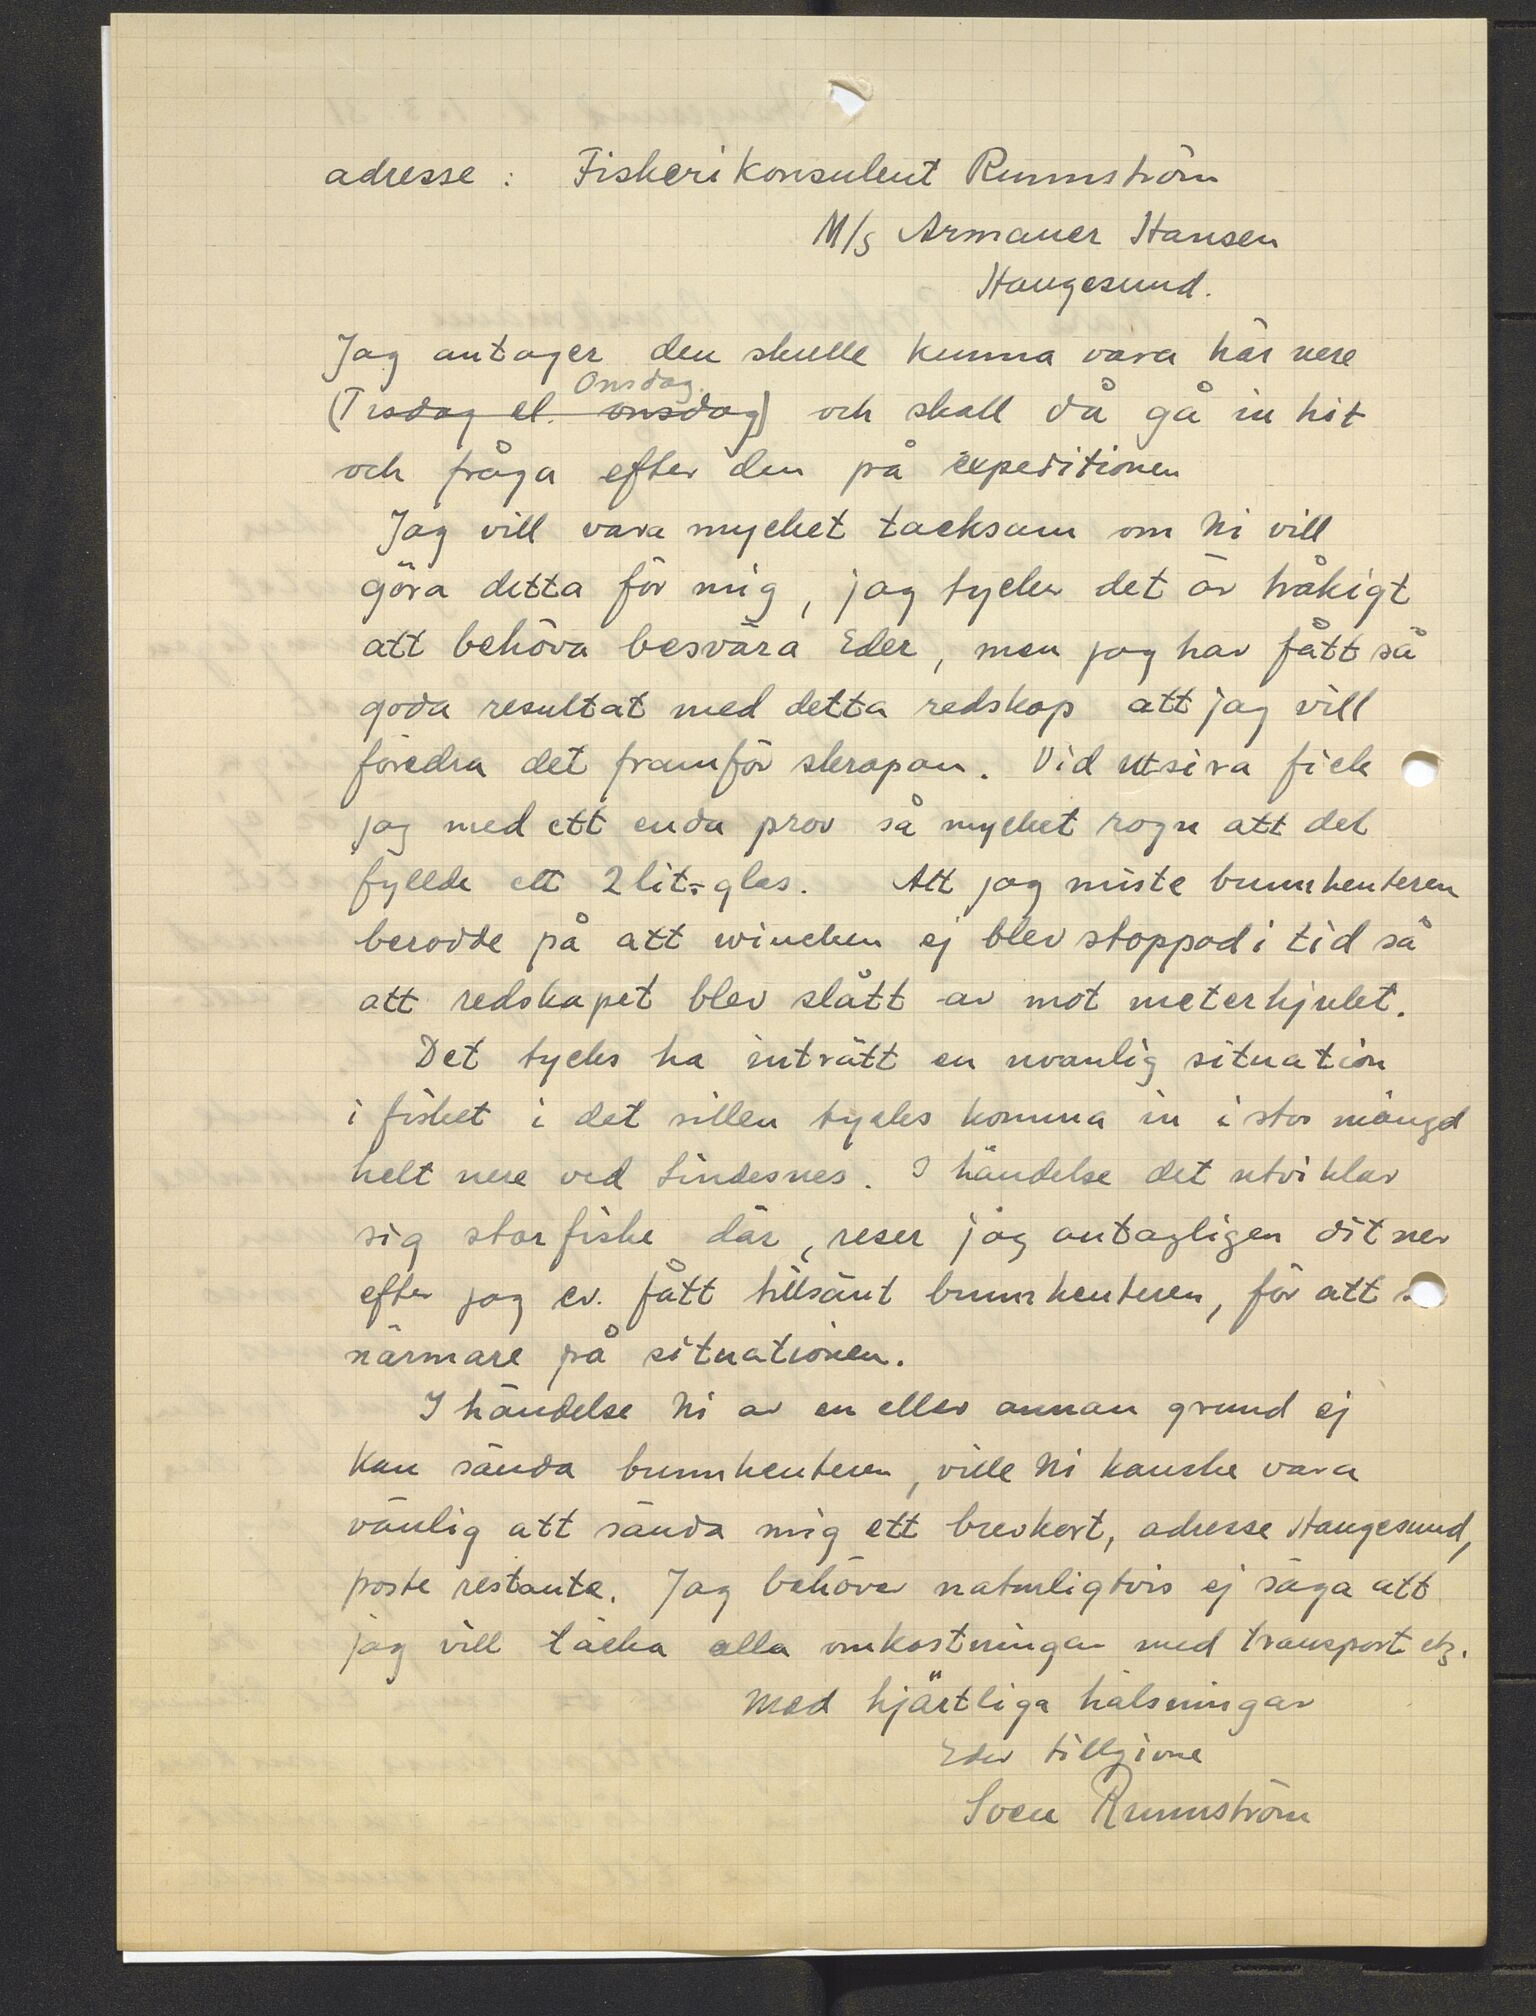 adresse : Fiskerikonsulent Runnström
M/S Armauer Hansen
Haugesund.
Jag antager den skulle kunna vara här nere
Onsdag.
(Tisdag el. onsdag) och skall då gå in hit
och fråga efter den på expeditionen
Jag vill vara mycket tacksam om Ni vill
göra detta för mig, jag tycker det är tråkigt
att behöva besvära Eder, men jag har fått så
goda resultat med detta redskap att jag vill
föredra det framför skrapan. Vid Utsira fick
jag med ett enda prov så mycket rogn att det
fyllde ett 2 lit.-glas. Att jag miste bunnhenteren
berodde på att winchen ej blev stoppad i tid så
att redskapet blev slått av mot meterhjulet.
Det tycks ha inträtt en uvanlig situation
i fisket i det sillen tycks komma in i stor mängd
helt nere ved Lindesnes. I händelse det utviklar
sig storfiske där, reser jag antagligen dit ner
efter jag ev. fått tillsänt bunnhenteren, för att s
närmare på situationen.
I händelse Ni av en eller annan grund ej
kan sända bunnhenteren, ville Ni kanske vara
vänlig att sända mig ett brevkort, adresse Haugesund,
poste restante. Jag behöver naturligtvis ej säga att
jag vill täcka alla omkostningar med transport etz.
Med hjärtliga hälsningar
Eder tillgivne
Sven Runnström